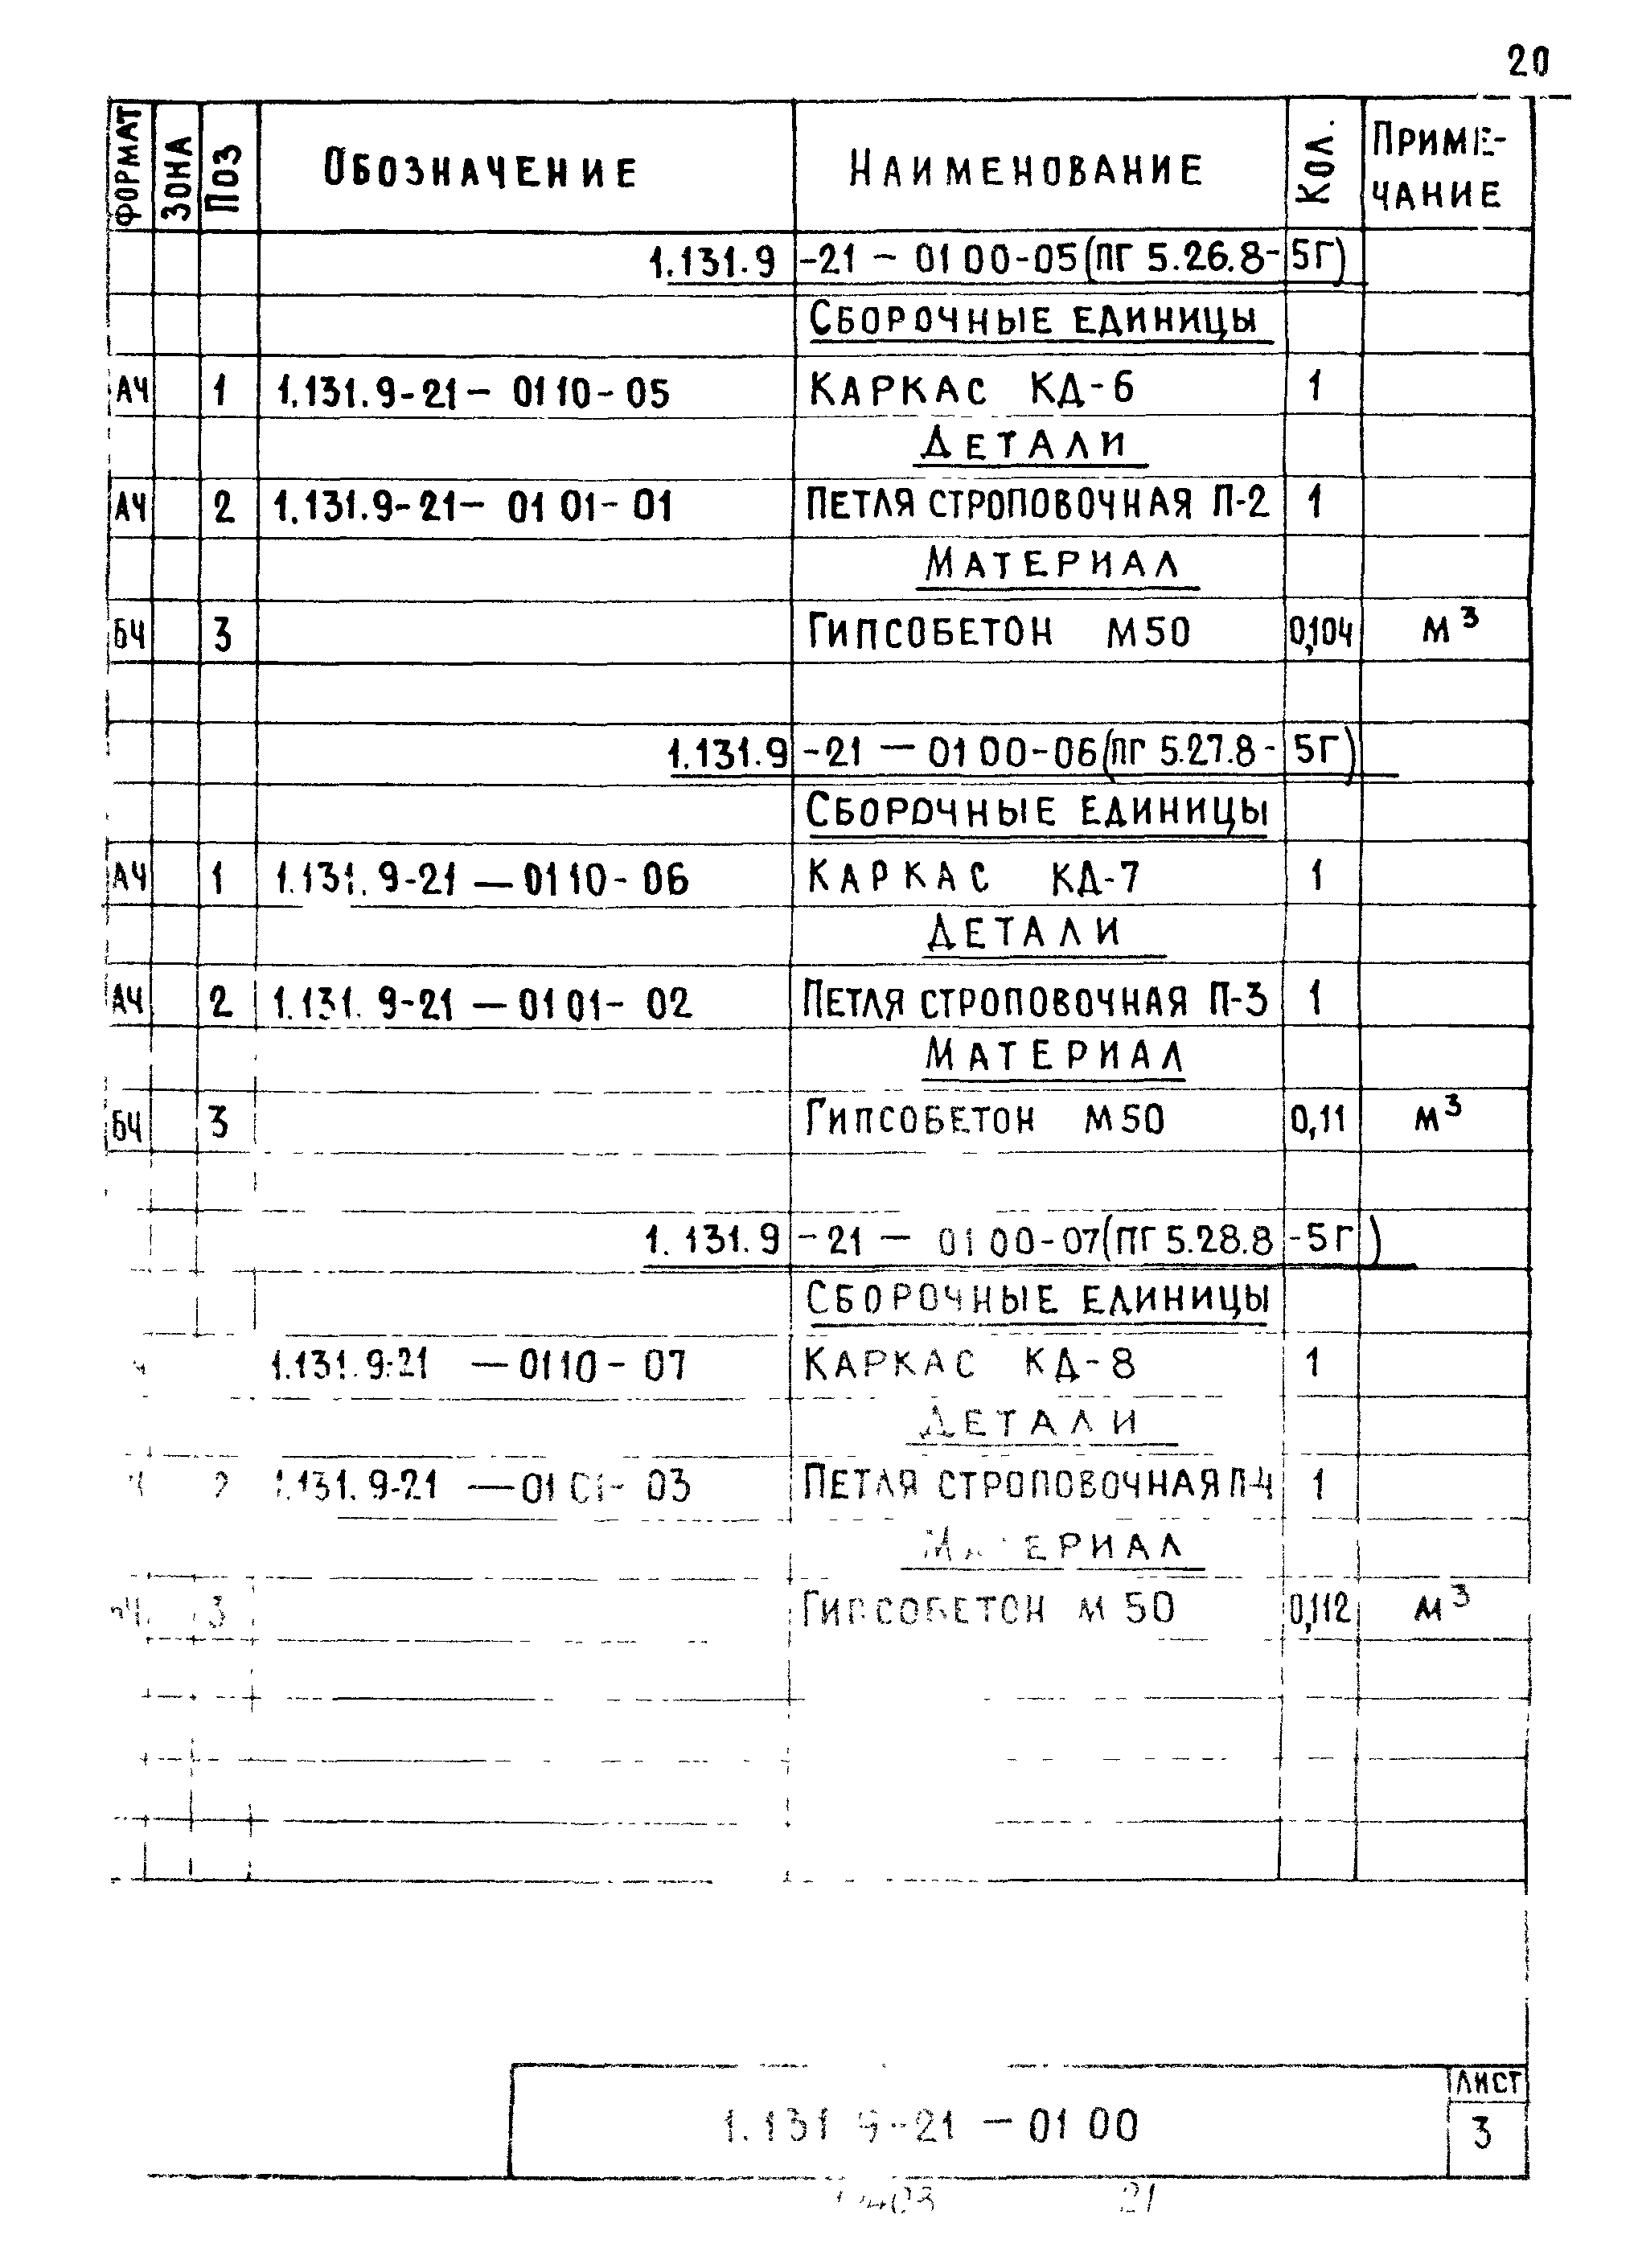 20
ФОРМАТ ЗОНА ПОЗ ОБОЗНАЧЕНИЕ НАИМЕНОВАНИЕ КОЛ. ПРИМЕ-
ЧАНИЕ
1.131.9-21-0100-05(ПГ 5.26.8-5Г)
СБОРОЧНЫЕ ЕДИНИЦЫ
А4 1 1.131.9-21-0110-05 КАРКАС КД-6 1
ДЕТАЛИ
А4 2 1.131.9-21-0101-01 ПЕТЛЯ СТРОПОВОЧНАЯ П-2 1
МАТЕРИАЛ
БЧ 3 ГИПСОБЕТОН М50 0,104 М³
1.131.9-21-0100-06(ПГ 5.27.8-5Г)
СБОРОЧНЫЕ ЕДИНИЦЫ
А4 1 1.131.9-21-0110-06 КАРКАС КД-7 1
ДЕТАЛИ
А4 2 1.131.9-21-0101-02 ПЕТЛЯ СТРОПОВОЧНАЯ П-3 1
МАТЕРИАЛ
БЧ 3 ГИПСОБЕТОН М50 0,11 М³
1.131.9-21-0100-07(ПГ 5.28.8-5Г)
СБОРОЧНЫЕ ЕДИНИЦЫ
1.131.9-21-0110-07 КАРКАС КД-8 1
ДЕТАЛИ
2 1.131.9-21-0101-03 ПЕТЛЯ СТРОПОВОЧНАЯ П-4 1
МАТЕРИАЛ
3 ГИПСОБЕТОН М50 0,112 М³
ЛИСТ
1.131.9-21-0100 3
21